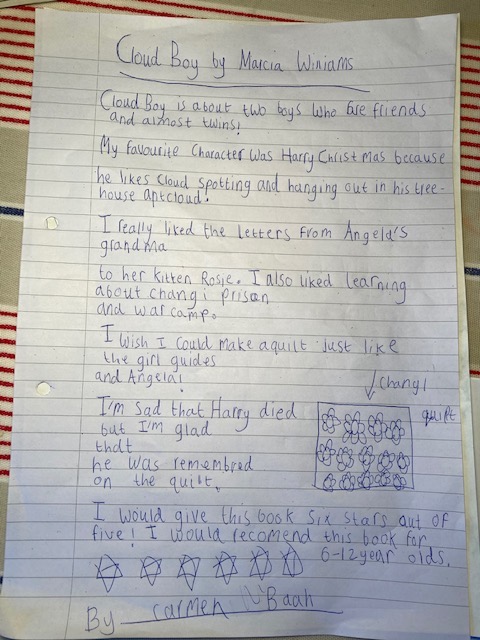 Cloud Boy by Marcia Winiams
Cloud Boy is about two boys who are friends
and almost twins!
My favourite character was Harry Christmas because
he likes cloud spotting and hanging out in his tree-
house aptcloud!
I really liked the letters from Angela's
grandma
to her kitten Rosie. I also liked learning
about changi prison
and war camp.
I wish I could make a quilt just like
the girl guides
and Angela!
changi
quilt
I'm sad that Harry died
but I'm glad
that
he was remembred
on the quilt.
I would give this book six stars out of
five! I would recomend this book for
6-12 year olds.
By Carmen Baah